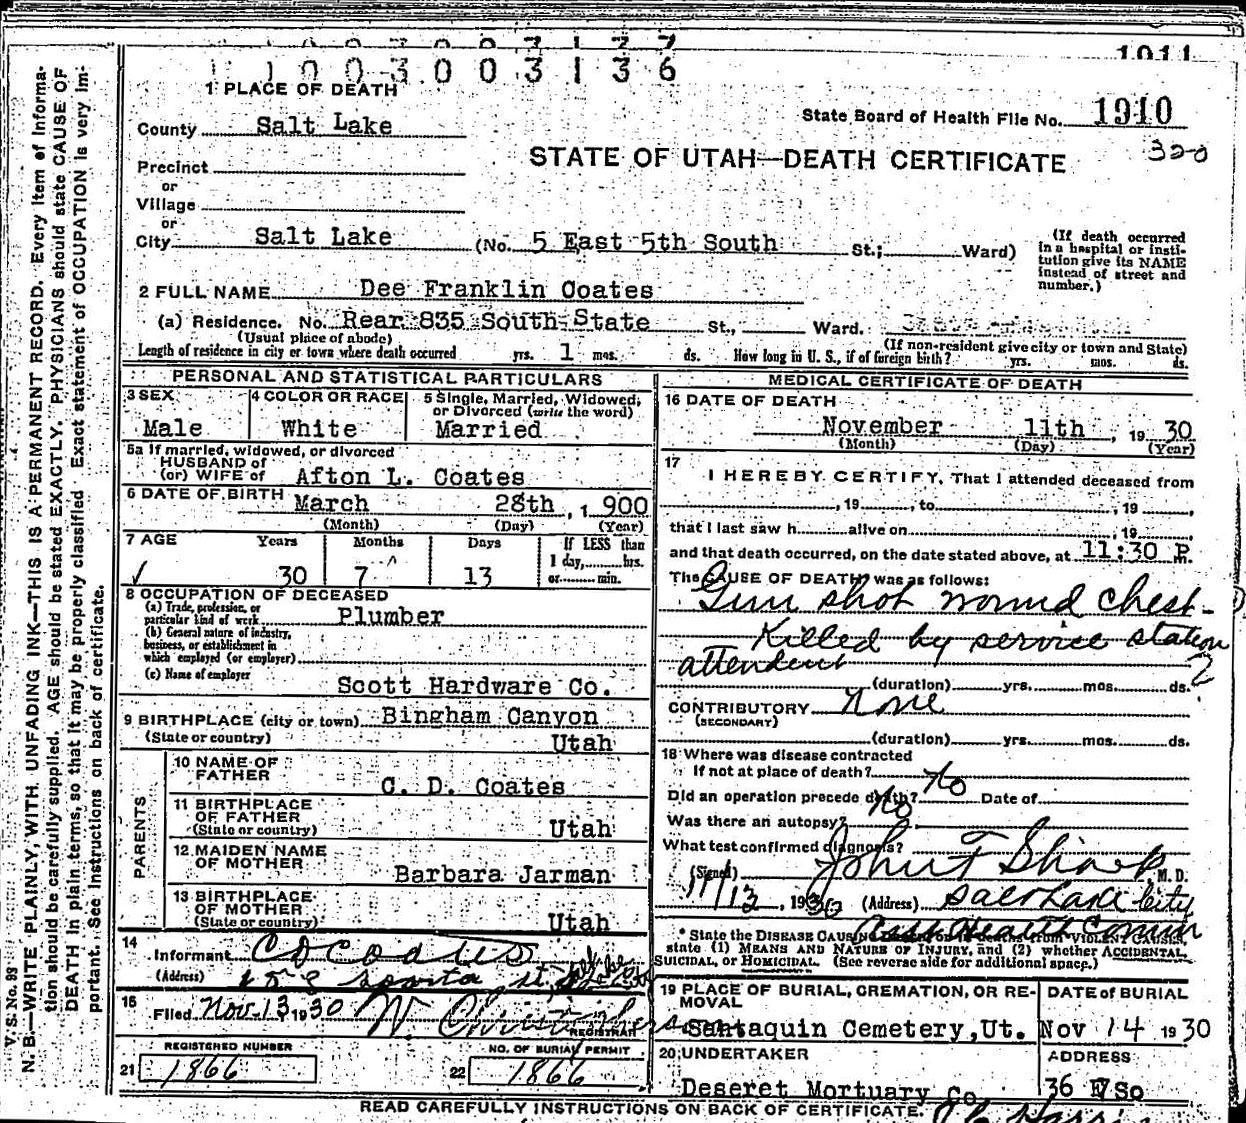 1003003136
1911
1 PLACE OF DEATH
State Board of Health File No. 1910
320
County Salt Lake
STATE OF UTAH—DEATH CERTIFICATE
Precinct
or
Village
or
City Salt Lake (No. 5 East 5th South St.; Ward)
(If death occurred in a hospital or institution give its NAME instead of street and number.)
2 FULL NAME Dee Franklin Coates
(a) Residence. No. Rear 835 South State St., Ward.
(Usual place of abode) (If non-resident give city or town and State)
Length of residence in city or town where death occurred yrs. 1 mos. ds. How long in U. S., if of foreign birth? yrs. mos. ds.
PERSONAL AND STATISTICAL PARTICULARS
3 SEX 4 COLOR OR RACE 5 Single, Married, Widowed, or Divorced (write the word)
Male White Married
5a If married, widowed, or divorced
HUSBAND of
(or) WIFE of Afton L. Coates
6 DATE OF BIRTH March 28th, 1 900
(Month) (Day) (Year)
7 AGE Years Months Days If LESS than 1 day, hrs. or min.
30 7 13
8 OCCUPATION OF DECEASED
(a) Trade, profession, or particular kind of work Plumber
(b) General nature of industry, business, or establishment in which employed (or employer)
(c) Name of employer
Scott Hardware Co.
9 BIRTHPLACE (city or town) Bingham Canyon
(State or country) Utah
PARENTS
10 NAME OF FATHER C. D. Coates
11 BIRTHPLACE OF FATHER (State or country) Utah
12 MAIDEN NAME OF MOTHER Barbara Jarman
13 BIRTHPLACE OF MOTHER (State or country) Utah
14
Informant C D Coates
(Address) sparta st
15
Filed Nov. 13, 1930
REGISTRAR
REGISTERED NUMBER NO. OF BURIAL PERMIT
21 1866 22 1866
MEDICAL CERTIFICATE OF DEATH
16 DATE OF DEATH
November 11th, 19 30
(Month) (Day) (Year)
17
I HEREBY CERTIFY, That I attended deceased from
, 19 , to , 19 ,
that I last saw h alive on , 19 ,
and that death occurred, on the date stated above, at 11:30 P.m.
The CAUSE OF DEATH* was as follows:
Gun shot wound chest-
Killed by service station
attendent
(duration) yrs. mos. ds.
CONTRIBUTORY None
(SECONDARY)
(duration) yrs. mos. ds.
18 Where was disease contracted
If not at place of death?
Did an operation precede death? No Date of
Was there an autopsy? No
What test confirmed diagnosis?
(Signed) John F Sharp M. D.
11/13, 1930 (Address) Salt Lake City
Health Comm
* State the DISEASE CAUSING DEATH, or in deaths from VIOLENT CAUSES, state (1) MEANS AND NATURE OF INJURY, and (2) whether ACCIDENTAL, SUICIDAL, or HOMICIDAL. (See reverse side for additional space.)
19 PLACE OF BURIAL, CREMATION, OR REMOVAL DATE of BURIAL
Santaquin Cemetery, Ut. Nov 14 1930
20 UNDERTAKER ADDRESS
Deseret Mortuary Co. 36 E 7 So
READ CAREFULLY INSTRUCTIONS ON BACK OF CERTIFICATE.
V. S. No. 93
N. B.—WRITE PLAINLY, WITH UNFADING INK—THIS IS A PERMANENT RECORD. Every item of information should be carefully supplied. AGE should be stated EXACTLY. PHYSICIANS should state CAUSE OF DEATH in plain terms, so that it may be properly classified. Exact statement of OCCUPATION is very important. See instructions on back of certificate.